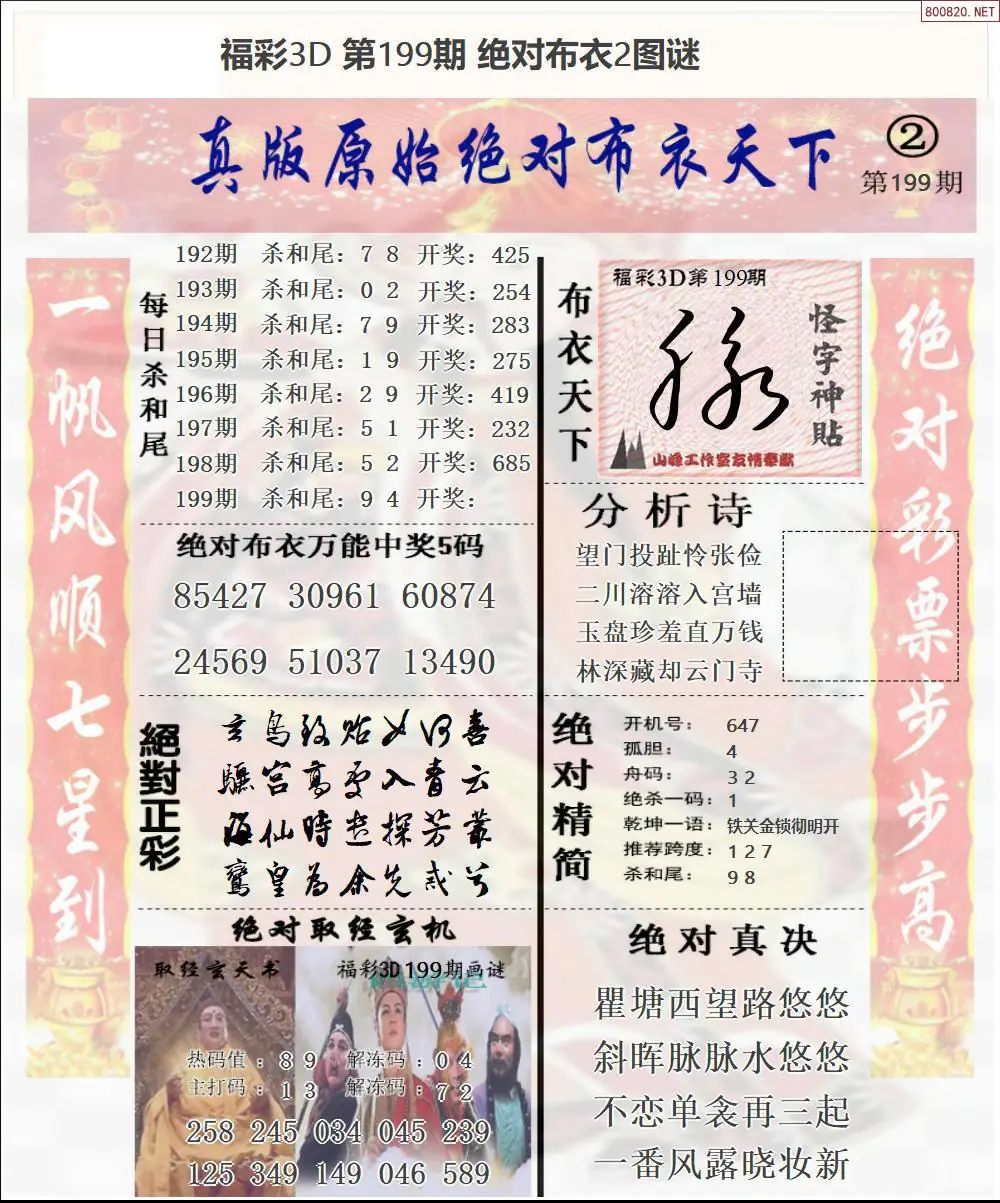 800820.NET
福彩3D 第199期 绝对布衣2图谜
真版原始绝对布衣天下
②
第199期
一帆风顺七星到
每日杀和尾
192期 杀和尾：7 8 开奖：425
193期 杀和尾：0 2 开奖：254
194期 杀和尾：7 9 开奖：283
195期 杀和尾：1 9 开奖：275
196期 杀和尾：2 9 开奖：419
197期 杀和尾：5 1 开奖：232
198期 杀和尾：5 2 开奖：685
199期 杀和尾：9 4 开奖：
绝对布衣万能中奖5码
85427 30961 60874
24569 51037 13490
絕對正彩
玄鸟致贻女何喜
驪宫高处入青云
海仙時遣探芳叢
鸞皇為余先戒兮
绝对取经玄机
取经玄天书
福彩3D199期画谜
热码值：8 9 解冻码：0 4
主打码：1 3 解冻码：7 2
258 245 034 045 239
125 349 149 046 589
布衣天下
福彩3D第199期
脉
怪字神貼
山峰工作室友情奉献
分析诗
望门投趾怜张俭
二川溶溶入宫墙
玉盘珍羞直万钱
林深藏却云门寺
绝对精简
开机号： 647
孤胆： 4
舟码： 3 2
绝杀一码：1
乾坤一语：铁关金锁彻明开
推荐跨度：1 2 7
杀和尾： 9 8
绝对真决
瞿塘西望路悠悠
斜晖脉脉水悠悠
不恋单衾再三起
一番风露晓妆新
绝对彩票步步高